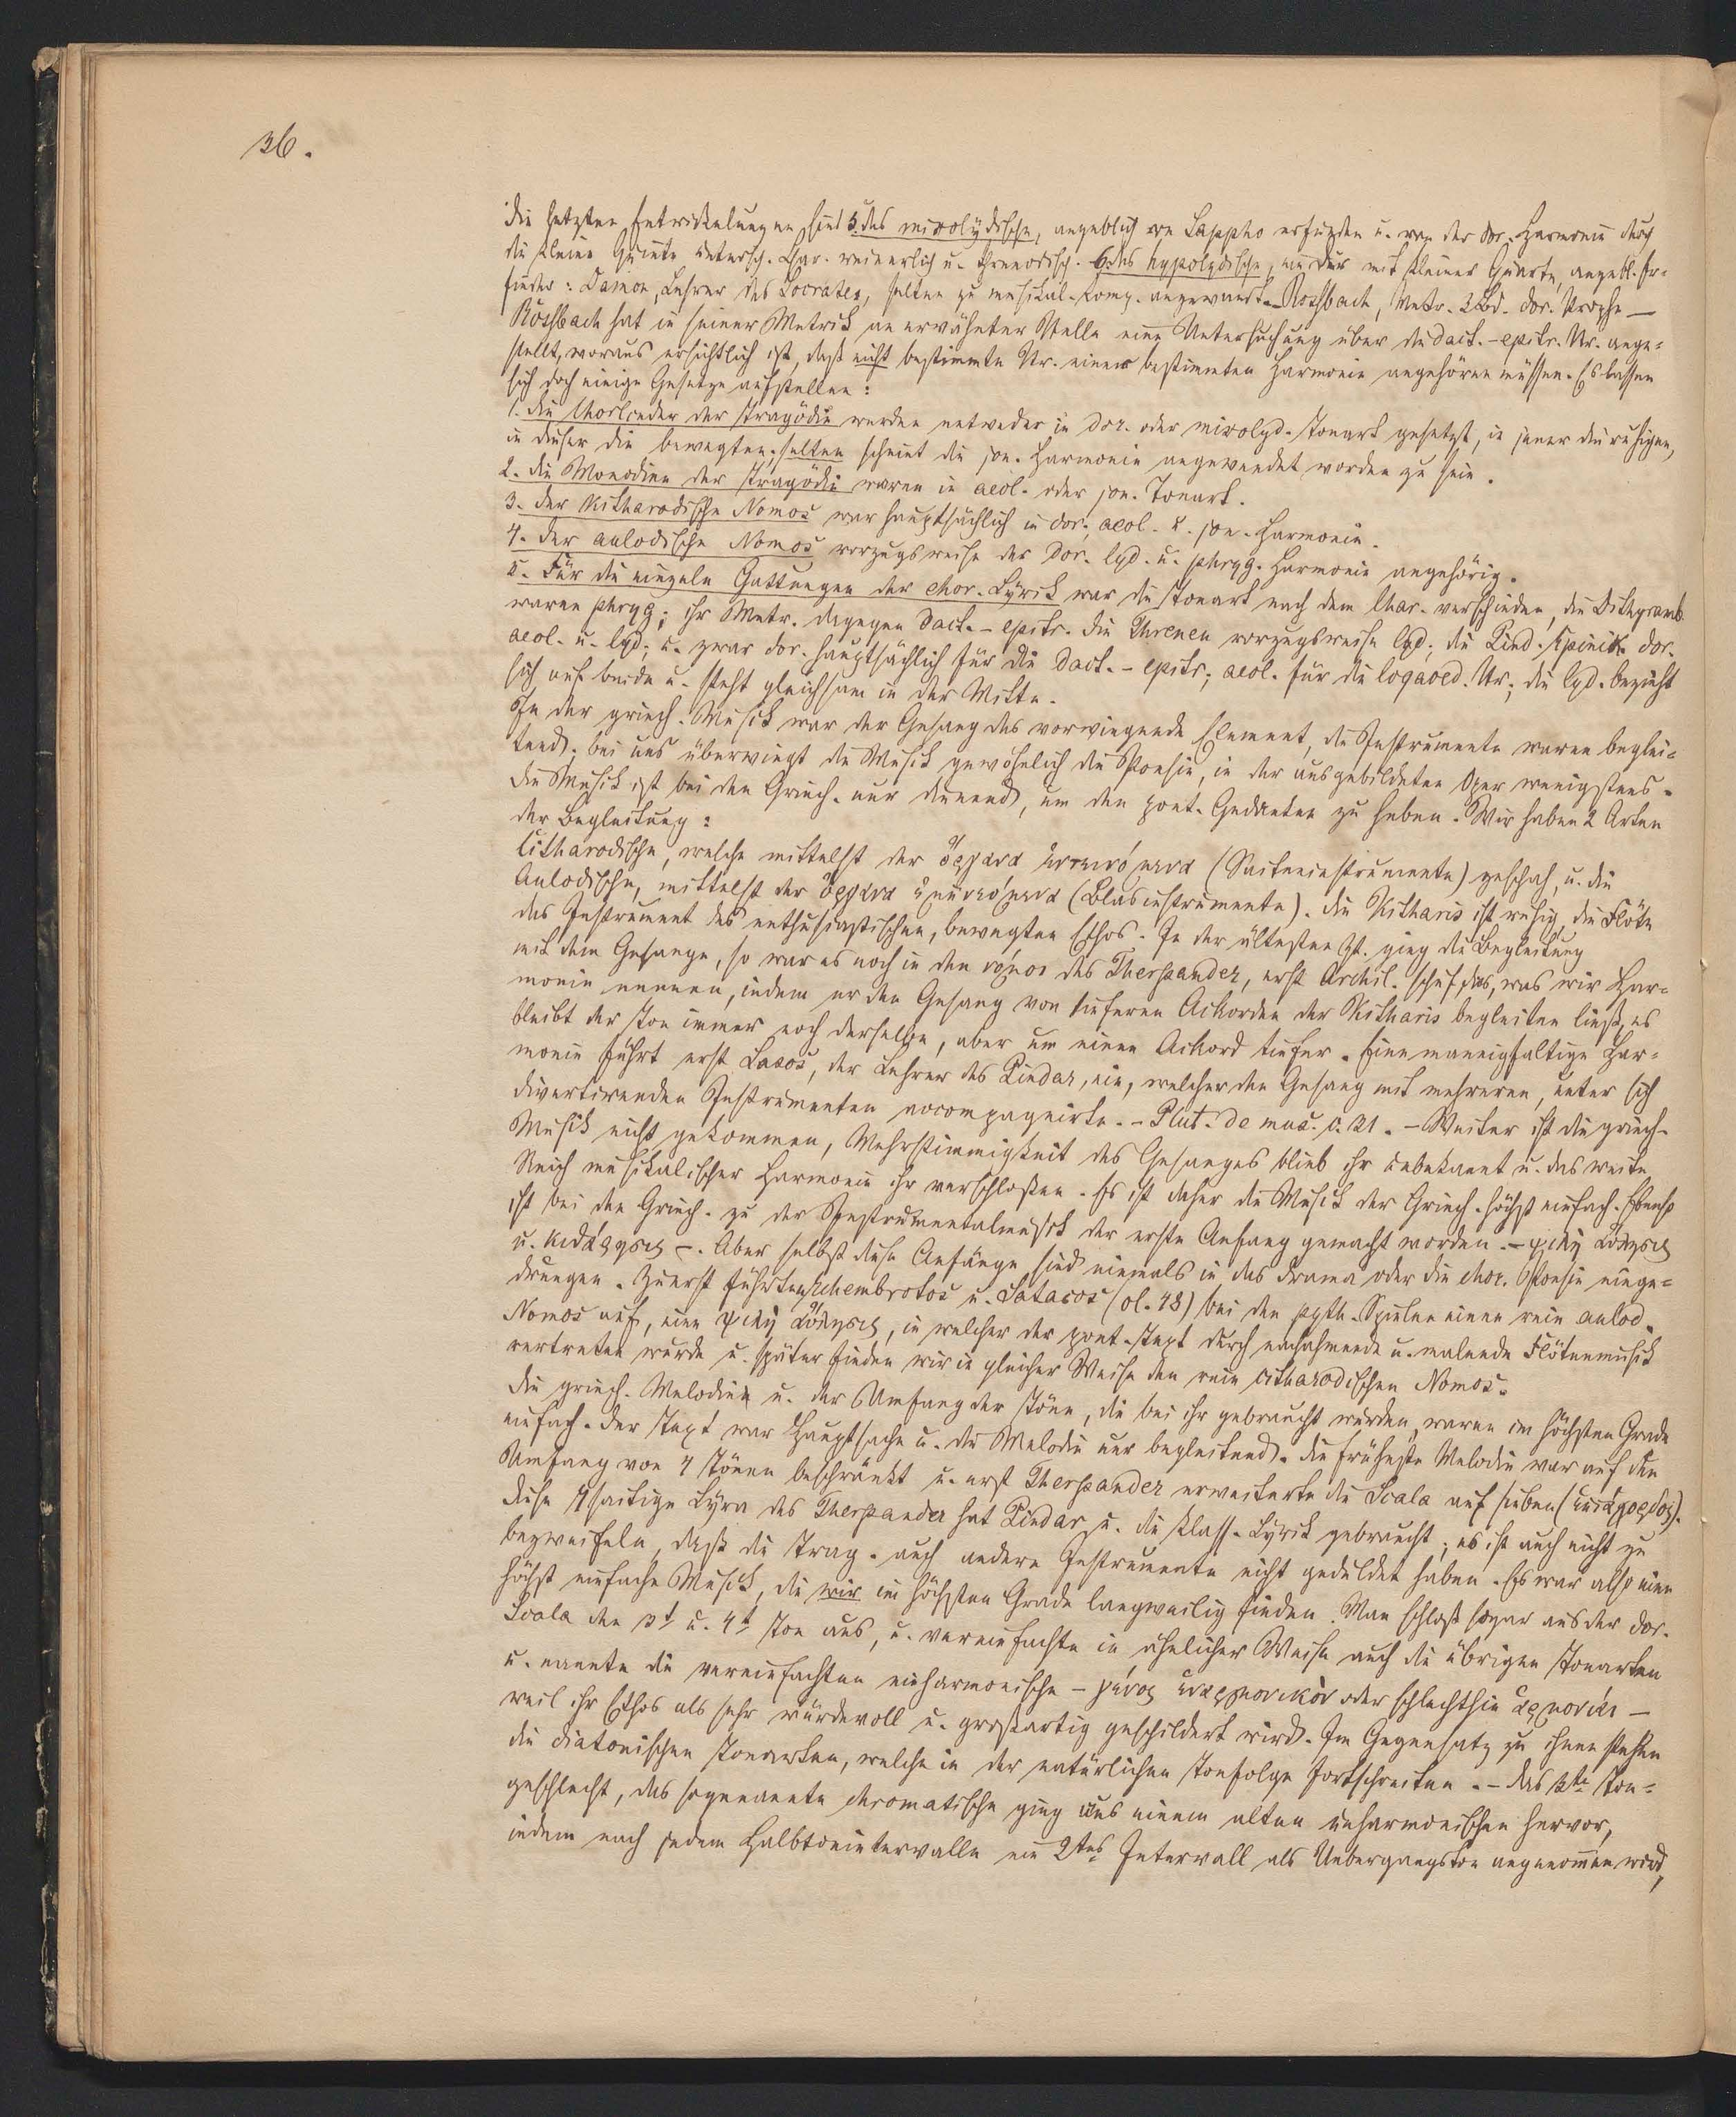 36.
Die letzten Entwickelungen sind 5. das mixolydische, angeblich von Sappho erfunden u. von der dor. Harmonie durch
die kleine Quinte untersch. Char. weinerlich u. threnodisch. 6. das hypolydische, mit kleiner Quarte, angebl. Er-
finder: Damon, Lehrer des Socrates, selten zu musikal. Comp. angewandt. Rossbach, Metr. 3 Bd. dor. Strophe —
Rossbach hat in seiner Metrik an erwähnter Stelle eine Untersuchung über die dact.-epitr. Str. ange-
stellt, woraus ersichtlich ist, daß nicht bestimmte Str. einer bestimmten Harmonie angehören müssen. Es lassen
sich doch einige Gesetze aufstellen:
1. die Chorlieder der Tragödie werden entweder in dor. oder mixolyd. Tonart gesetzt, in jener die ruhigen,
in dieser die bewegten, selten scheint die jon. Harmonie angewendet worden zu sein.
2. die Monodien der Tragödie waren in aeol. oder jon. Tonart.
3. der kitharodische Nomos war hauptsächlich in dor., aeol. u. jon. Harmonie.
4. der aulodische Nomos vorzugsweise der dor. lyd. u. phryg. Harmonie angehörig.
5. Für die einzeln Gattungen der chor. Lyrik war die Tonart nach dem Char. verschieden, die Dithyramb.
waren phryg; ihr Metr. dagegen dact.-epitr. die Threnen vorzugsweise lyd; die Pind. Epinik. dor.
aeol. u. lyd; u. zwar dor. hauptsächlich für die dact.-epitr; aeol. für die logaoed. Str; die lyd. bezieht
sich auf beide u. steht gleichsam in der Mitte.
In der griech. Musik war der Gesang das vorwiegende Element, die Instrumente waren beglei-
tend; bei uns überwiegt die Musik gewöhnlich die Poesie, in der ausgebildeten Oper wenigstens.
Die Musik ist bei den Griech. nur dienend, um den poet. Gedanken zu heben. Wir haben 2 Arten
der Begleitung:
Citharodische, welche mittelst der ὄργανα ἐντεινόμενα (Saiteninstrumente) geschah, u. die
Aulodische, mittelst der ὄργανα ἐμπνεόμενα (Blasinstrumente). Die Kitharis ist ruhig, die Flöte
das Instrument des enthusiastischen, bewegten Ethos. In der ältesten Zt. ging die Begleitung
mit dem Gesange, so war es noch in den νόμοι des Therpander, erst Archil. schuf das, was wir Har-
monie nennen, indem er den Gesang von tieferen Ackorden der Kitharis begleiten ließ, es
bleibt der Ton immer noch derselbe, aber um einen Ackord tiefer. Eine mannigfaltige Har-
monie führt erst Lasos, der Lehrer des Pindar, ein, welcher den Gesang mit mehreren, unter sich
divertirenden Instrumenten accompagnirte. - Plut. de mus. c. 21. - Weiter ist die griech.
Musik nicht gekommen, Mehrstimmigkeit des Gesanges blieb ihr unbekannt u. das weite
Reich musikalischer Harmonie ihr verschloßen. Es ist daher die Musik der Griech. höchst einfach. Ebenso
ist bei den Griech. zu der Instrumentalmusik der erste Anfang gemacht worden. - ψιλὴ αὔλησις
u. κιθάρησις -. Aber selbst diese Anfänge sind niemals in das Drama oder die chor. Poesie einge-
drungen. Zuerst führten Echembrotos u. Satacos (ol. 48) bei den pyth. Spielen einen rein aulod.
Nomos auf, eine ψιλὴ αὔλησις, in welcher der poet. Text durch nachahmende u. malende Flötenmusik
vertreten wurde u. später finden wir in gleicher Weise den rein citharodischen Nomos.
Die griech. Melodien u. der Umfang der Töne, die bei ihr gebraucht wurden, waren im höchsten Grade
einfach. Der Text war Hauptsache u. die Melodie nur begleitend. Die früheste Melodie war auf den
Umfang von 4 Tönen beschränkt u. erst Therpander erweiterte die Scala auf sieben (ἑπτάχορδος).
Diese 7saitige Lyra des Therpander hat Pindar u. die klass. Lyrik gebraucht; es ist auch nicht zu
bezweifeln, daß die Trag. auch andere Instrumente nicht geduldet haben. Es war also eine
höchst einfache Musik, die wir im höchsten Grade langweilig finden. Man schloß sogar aus der dor.
Scala den 3t. u. 4t. Ton aus, u. vereinfachte in ähnlicher Weise auch die übrigen Tonarten
u. nannte die vereinfachten enharmonische - γένος ἐναρμονικὸν oder schlechthin ἁρμονίαι —
weil ihr Ethos als sehr würdevoll u. großartig geschildert wird. Im Gegensatz zu ihnen stehen
die diatonischen Tonarten, welche in der natürlichen Tonfolge fortschreiten. - Das 3te Ton-
geschlecht, das sogenannte chromatische ging aus einem alten enharmonischen hervor,
indem nach jedem Halbtonintervalle ein 2tes Intervall als Uebergangston angenommen wird,